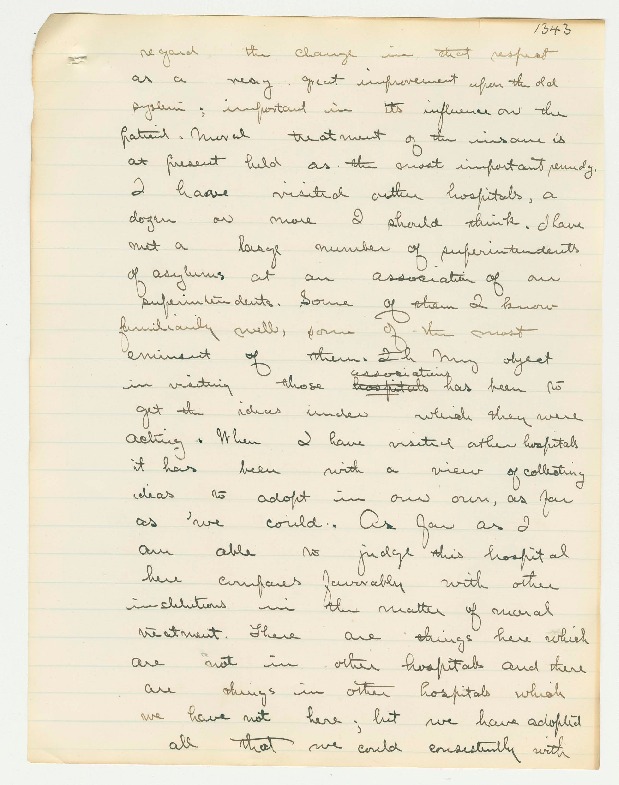 1343
regard the change in that respect
as a very great improvement upon the old
system; important in its influence on the
patient. Moral treatment of the insane is
at present held as the most important remedy.
I have visited other hospitals, a
dozen or more I should think. I have
met a large number of superintendents
of asylums at an association of our
superintendents. Some of them I know
familiarly well, some of the most
eminent of them. My object
associations
in visiting those hospitals has been to
get the ideas under which they were
acting. When I have visited other hospitals
it has been with a view of collecting
ideas to adopt in our own, as far
as we could. As far as I
am able to judge this hospital
here compares favorably with other
institutions in the matter of moral
treatment. There are things here which
are not in other hospitals and there
are things in other hospitals which
we have not here; but we have adopted
all that we could consistently with